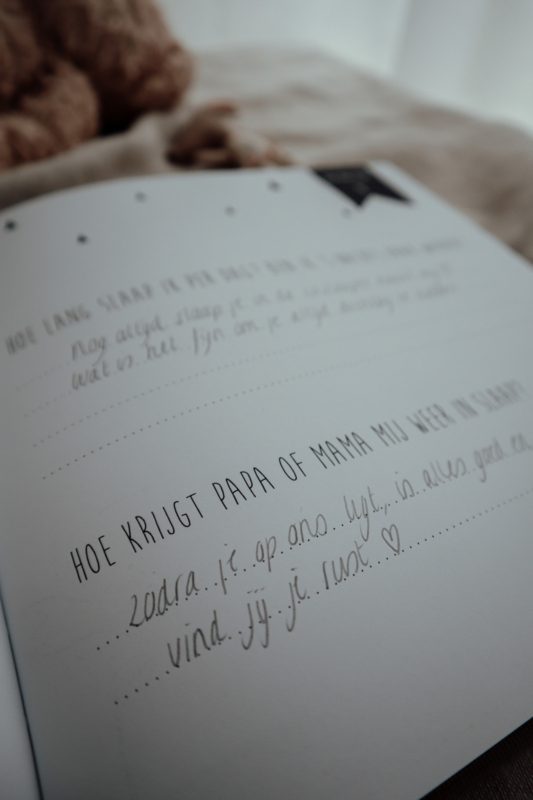 HOE LANG SLAAP IK PER DAG?
Nog altijd slaap je in de
wat is het fijn om je altijd
HOE KRIJGT PAPA OF MAMA MIJ WEER IN SLAAP?
zodra je op ons ligt, is alles goed en
vind jij je rust ♡